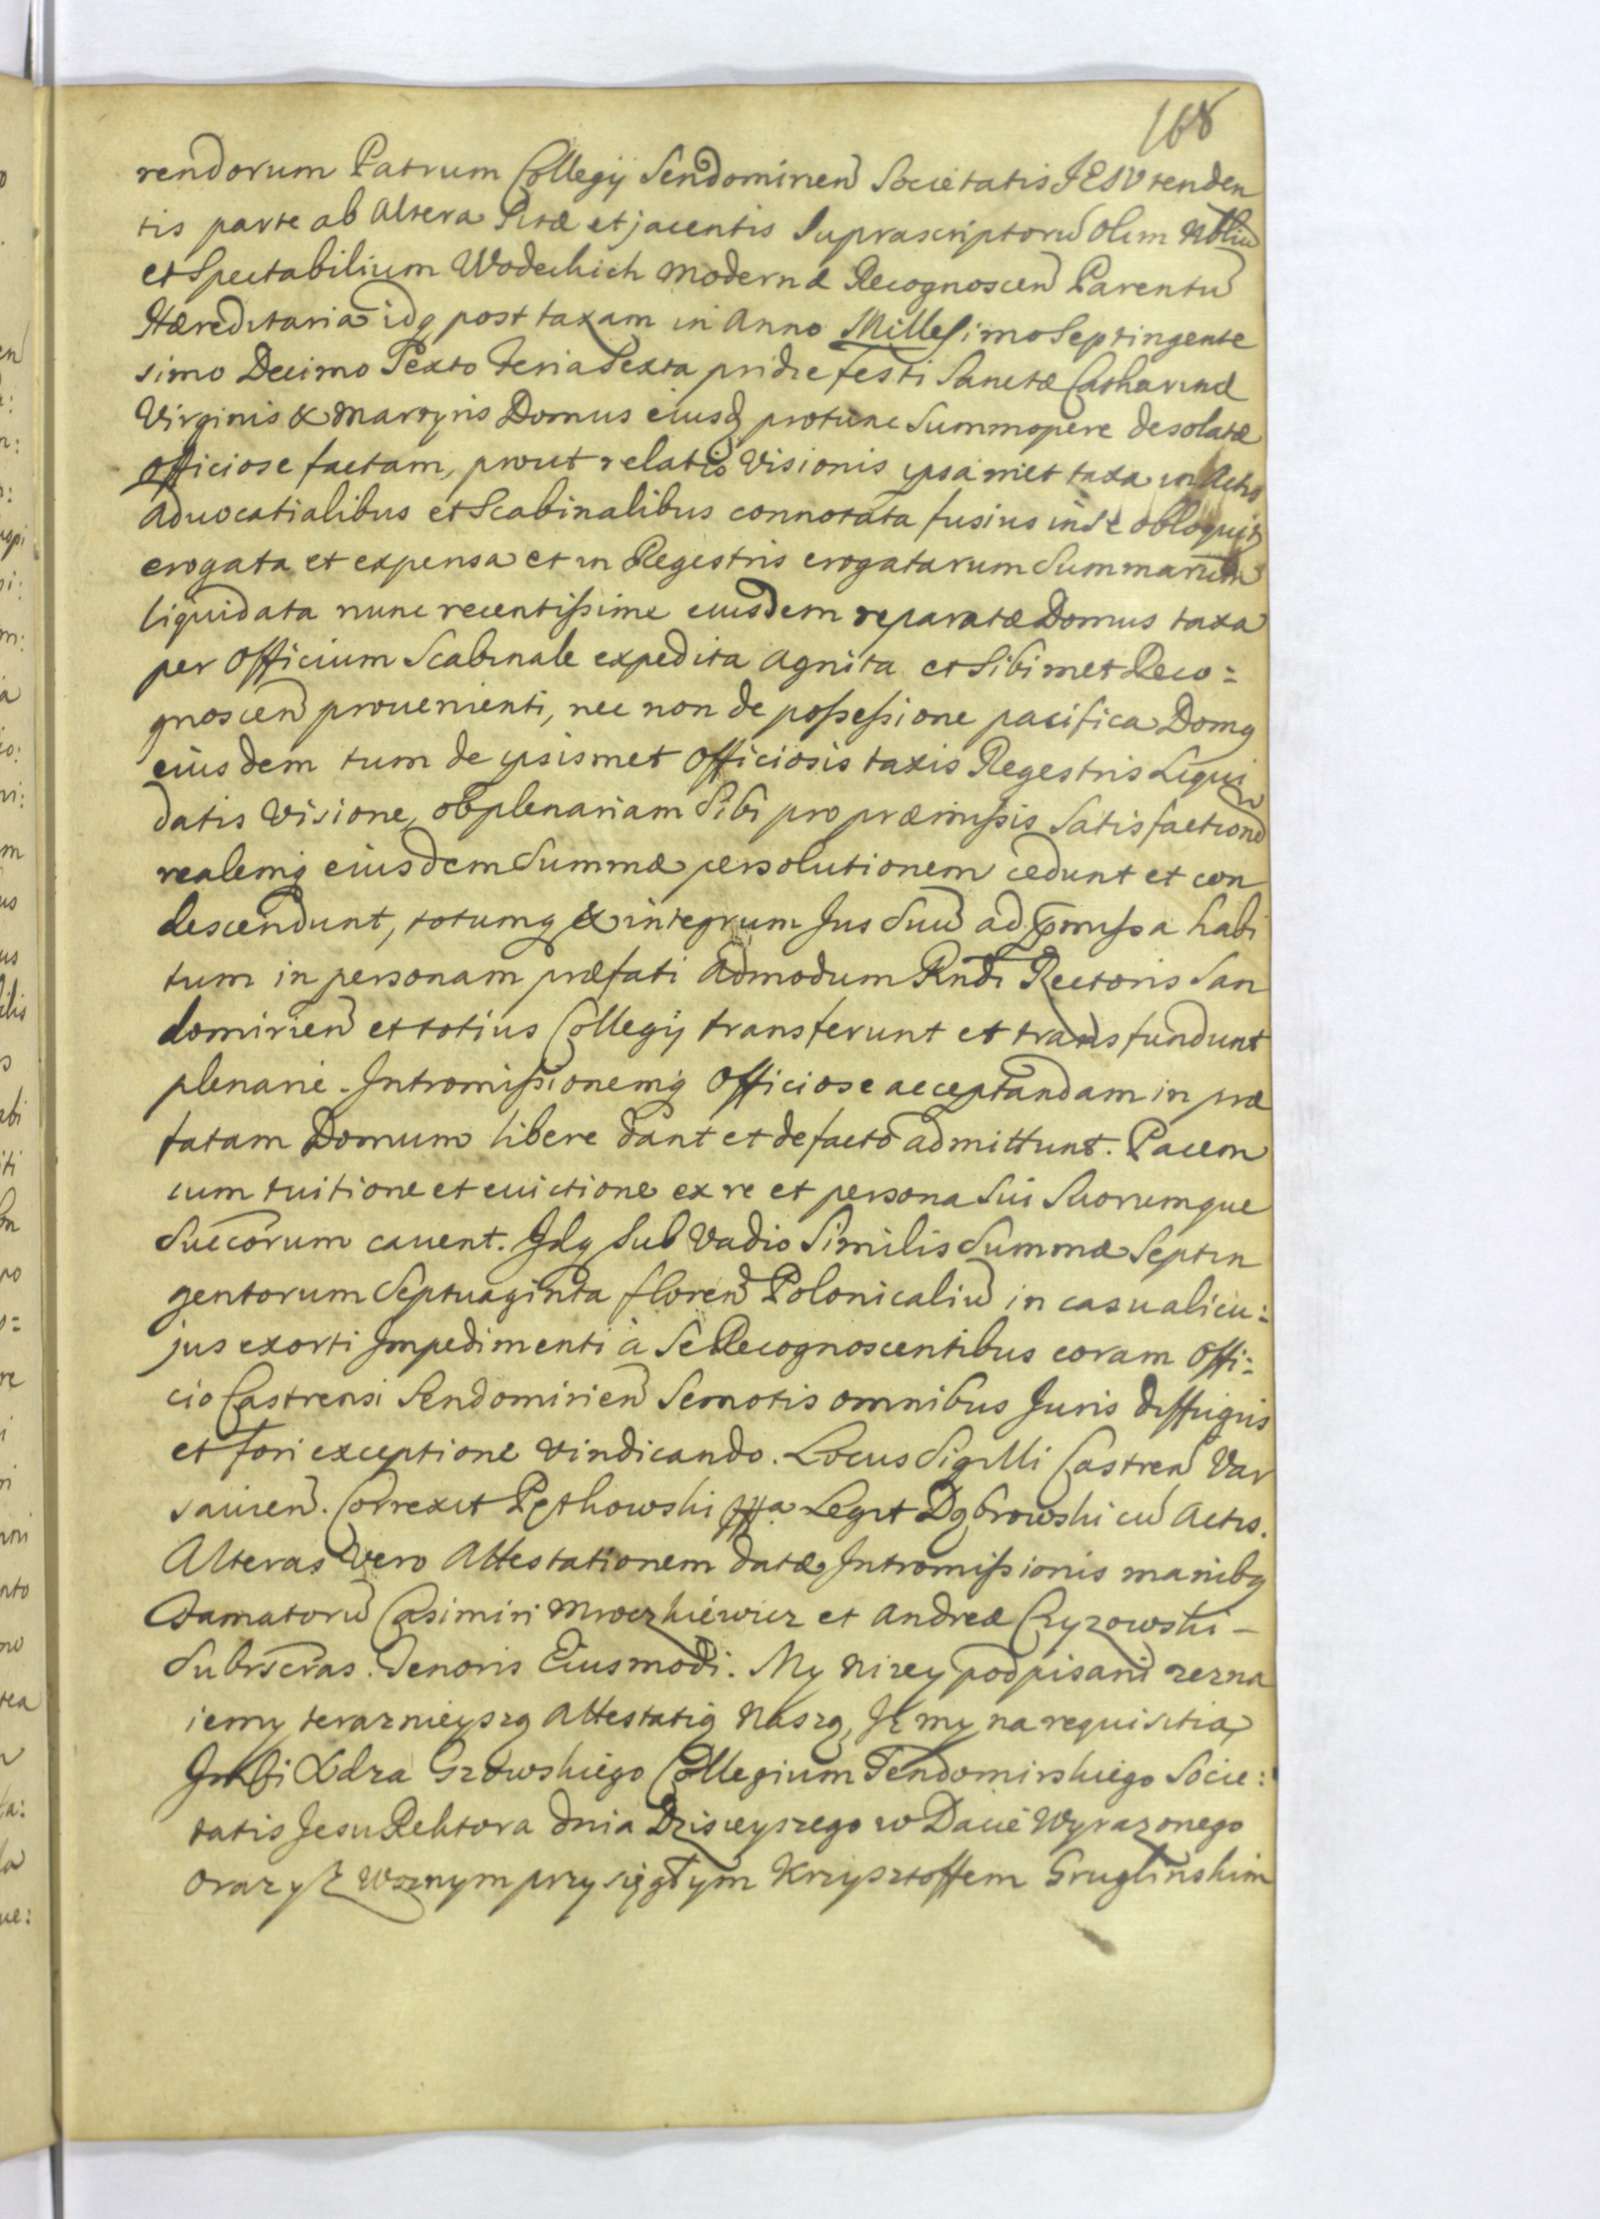 168
rendorum Patrum Collegij Sendomirien Societatis JESU tenden
tis parte ab altera sitæ et jacentis Suprascriptorū olim Nbliū
et Spectabilium Wodeckich modernæ Recognoscen Parentū
Hæreditaria idq post taxam in Anno Millesimo Septingente
simo Decimo Sexto feria Sexta pridie festi Sanctæ Catharinæ
Virginis & Martyris Domus eiusq protunc Summopere desolatæ
officiose factam, prout relatio Visionis ipsamet taxa in Actis
Advocatialibus et Scabinalibus connotata fusius inde obloquit
erogata et expensa et in Regestris erogatarum Summarum
liquidata nunc recentissime eiusdem reparatæ Domus taxa
per Officium Scabinale expedita agnita et Sibimet Reco=
gnoscen provenienti, nec non de possessione pacifica Domq
eiusdem tum de ipsismet officiosis taxis Regestris Liqui
datis Visione, ob plenariam Sibi pro præmissis Satisfactionē
realemq eiusdem Summæ persolutionem cedunt et con
descendunt, totumq & integrum Jus Suū ad pmissa habi
tum in personam præfati Admodum Rndi Rectoris San
domirien et totius Collegij transferunt et transfundunt
plenarie. Intromissionemq officiose acceptandam in præ
fatam Domum libere dant et defacto admittunt. Pacem
cum tuitione et evictione ex re et persona Sui Suorumque
Succorum cavent. Idq Sub Vadio Similis Summæ Septin
gentorum Septuaginta floren Polonicaliū in casu alicu=
jus exorti Impedimenti à Se Recognoscentibus coram Offi=
cio Castrensi Sendomirien Semotis omnibus Juris diffugiis
et fori exceptione vindicando. Locus Sigilli Castren Var
savien. Correxit Pętkowski Legit Dąbrowski cū Actis.
Alteras Vero Attestationem datæ Intromissionis manibq
Famatorū Casimiri Mroczkiewicz et Andreæ Czyzowski -
Subrscras. Tenoris Eiusmodi. My nizey podpisani zezna
iemy terazniejszą Attestatią Naszą, Iz my na requisitią
Xdza Gzowskiego Collegium Sendomirskiego Socie=
tatis Jesu Rektora dnia Dzisieyszego w Dacie Wyrazonego
oraz y z Woznym przysięgłym Krzysztoffem Gruglinskim